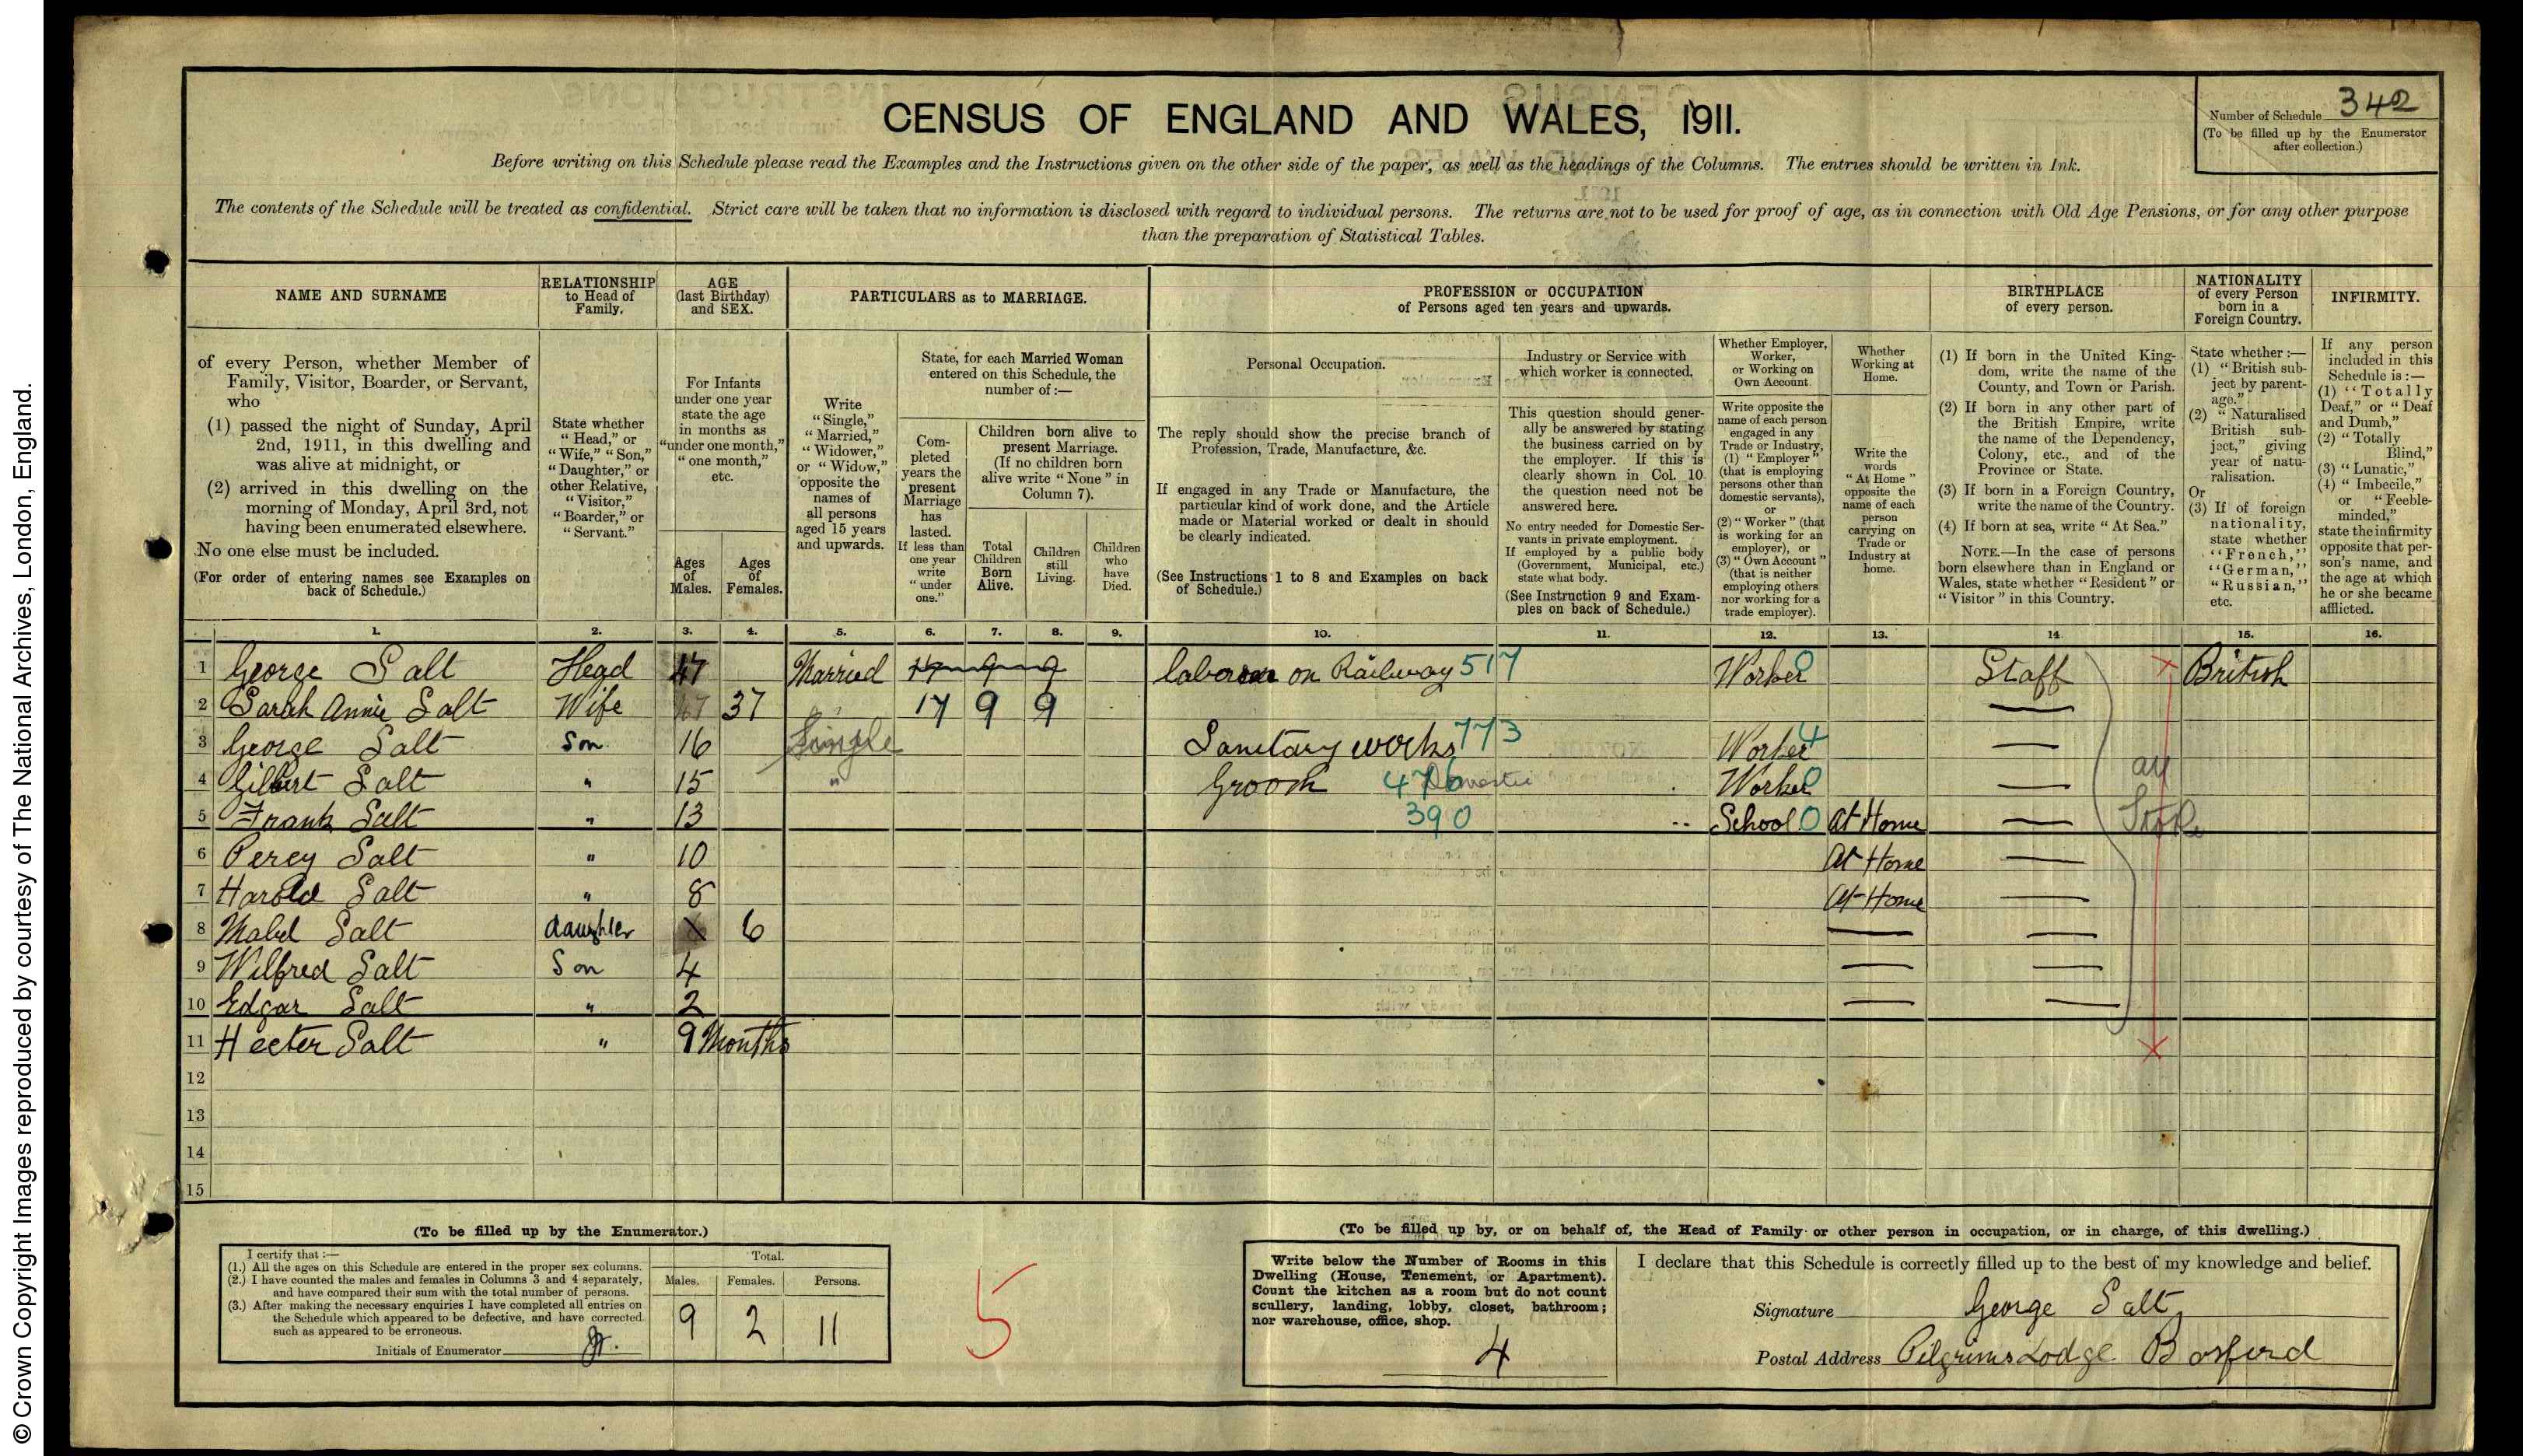 © Crown Copyright Images reproduced by courtesy of The National Archives, London, England.
CENSUS OF ENGLAND AND WALES, 1911.
Number of Schedule 342
(To be filled up by the Enumerator
after collection.)
Before writing on this Schedule please read the Examples and the Instructions given on the other side of the paper, as well as the headings of the Columns. The entries should be written in Ink.
The contents of the Schedule will be treated as confidential. Strict care will be taken that no information is disclosed with regard to individual persons. The returns are not to be used for proof of age, as in connection with Old Age Pensions, or for any other purpose
than the preparation of Statistical Tables.
NAME AND SURNAME
of every Person, whether Member of
Family, Visitor, Boarder, or Servant,
who
(1) passed the night of Sunday, April
2nd, 1911, in this dwelling and
was alive at midnight, or
(2) arrived in this dwelling on the
morning of Monday, April 3rd, not
having been enumerated elsewhere.
No one else must be included.
(For order of entering names see Examples on
back of Schedule.)
RELATIONSHIP
to Head of
Family.
State whether
"Head," or
"Wife," "Son,"
"Daughter," or
other Relative,
"Visitor,"
"Boarder," or
"Servant."
AGE
(last Birthday)
and SEX.
For Infants
under one year
state the age
in months as
"under one month,"
"one month,"
etc.
Ages
of
Males.
Ages
of
Females.
PARTICULARS as to MARRIAGE.
Write
"Single,"
"Married,"
"Widower,"
or "Widow,"
opposite the
names of
all persons
aged 15 years
and upwards.
State, for each Married Woman
entered on this Schedule, the
number of :—
Com-
pleted
years the
present
Marriage
has
lasted.
If less than
one year
write
"under
one."
Children born alive to
present Marriage.
(If no children born
alive write "None" in
Column 7).
Total
Children
Born
Alive.
Children
still
Living.
Children
who
have
Died.
PROFESSION or OCCUPATION
of Persons aged ten years and upwards.
Personal Occupation.
The reply should show the precise branch of
Profession, Trade, Manufacture, &c.
If engaged in any Trade or Manufacture, the
particular kind of work done, and the Article
made or Material worked or dealt in should
be clearly indicated.
(See Instructions 1 to 8 and Examples on back
of Schedule.)
Industry or Service with
which worker is connected.
This question should gener-
ally be answered by stating
the business carried on by
the employer. If this is
clearly shown in Col. 10
the question need not be
answered here.
No entry needed for Domestic Ser-
vants in private employment.
If employed by a public body
(Government, Municipal, etc.)
state what body.
(See Instruction 9 and Exam-
ples on back of Schedule.)
Whether Employer,
Worker,
or Working on
Own Account.
Write opposite the
name of each person
engaged in any
Trade or Industry,
(1) "Employer"
(that is employing
persons other than
domestic servants),
or
(2) "Worker" (that
is working for an
employer), or
(3) "Own Account"
(that is neither
employing others
nor working for a
trade employer).
Whether
Working at
Home.
Write the
words
"At Home"
opposite the
name of each
person
carrying on
Trade or
Industry at
home.
BIRTHPLACE
of every person.
(1) If born in the United King-
dom, write the name of the
County, and Town or Parish.
(2) If born in any other part of
the British Empire, write
the name of the Dependency,
Colony, etc., and of the
Province or State.
(3) If born in a Foreign Country,
write the name of the Country.
(4) If born at sea, write "At Sea."
NOTE.—In the case of persons
born elsewhere than in England or
Wales, state whether "Resident" or
"Visitor" in this Country.
NATIONALITY
of every Person
born in a
Foreign Country.
State whether :—
(1) "British sub-
ject by parent-
age."
(2) "Naturalised
British sub-
ject," giving
year of natu-
ralisation.
Or
(3) If of foreign
nationality,
state whether
"French,"
"German,"
"Russian,"
etc.
INFIRMITY.
If any person
included in this
Schedule is :—
(1) "Totally
Deaf," or "Deaf
and Dumb,"
(2) "Totally
Blind,"
(3) "Lunatic,"
(4) "Imbecile,"
or "Feeble-
minded,"
state the infirmity
opposite that per-
son's name, and
the age at which
he or she became
afflicted.
1. 2. 3. 4. 5. 6. 7. 8. 9. 10. 11. 12. 13. 14. 15. 16.
1 George Salt Head 47 Married 17 9 9 laborer on Railway 517 Worker 0 Staff British
2 Sarah Annie Salt Wife 37 " 17 9 9 —
3 George Salt Son 16 Single Sanitary works 773 Worker 4 —
4 Gilbert Salt " 15 " Groom 476 Domestic Worker 0 — all
5 Frank Salt " 13 390 School 0 At Home — Stoke
6 Percy Salt " 10 At Home —
7 Harold Salt " 8 At Home —
8 Mabel Salt daughter 6 — —
9 Wilfred Salt Son 4 — —
10 Edgar Salt " 2 — —
11 Hecter Salt " 9 Months
12
13
14
15
(To be filled up by the Enumerator.)
I certify that :—
(1.) All the ages on this Schedule are entered in the proper sex columns.
(2.) I have counted the males and females in Columns 3 and 4 separately,
and have compared their sum with the total number of persons.
(3.) After making the necessary enquiries I have completed all entries on
the Schedule which appeared to be defective, and have corrected
such as appeared to be erroneous.
Initials of Enumerator
Total.
Males. Females. Persons.
9 2 11
5
(To be filled up by, or on behalf of, the Head of Family or other person in occupation, or in charge, of this dwelling.)
Write below the Number of Rooms in this
Dwelling (House, Tenement, or Apartment).
Count the kitchen as a room but do not count
scullery, landing, lobby, closet, bathroom;
nor warehouse, office, shop.
4
I declare that this Schedule is correctly filled up to the best of my knowledge and belief.
Signature George Salt
Postal Address Pilgrims Lodge Basford